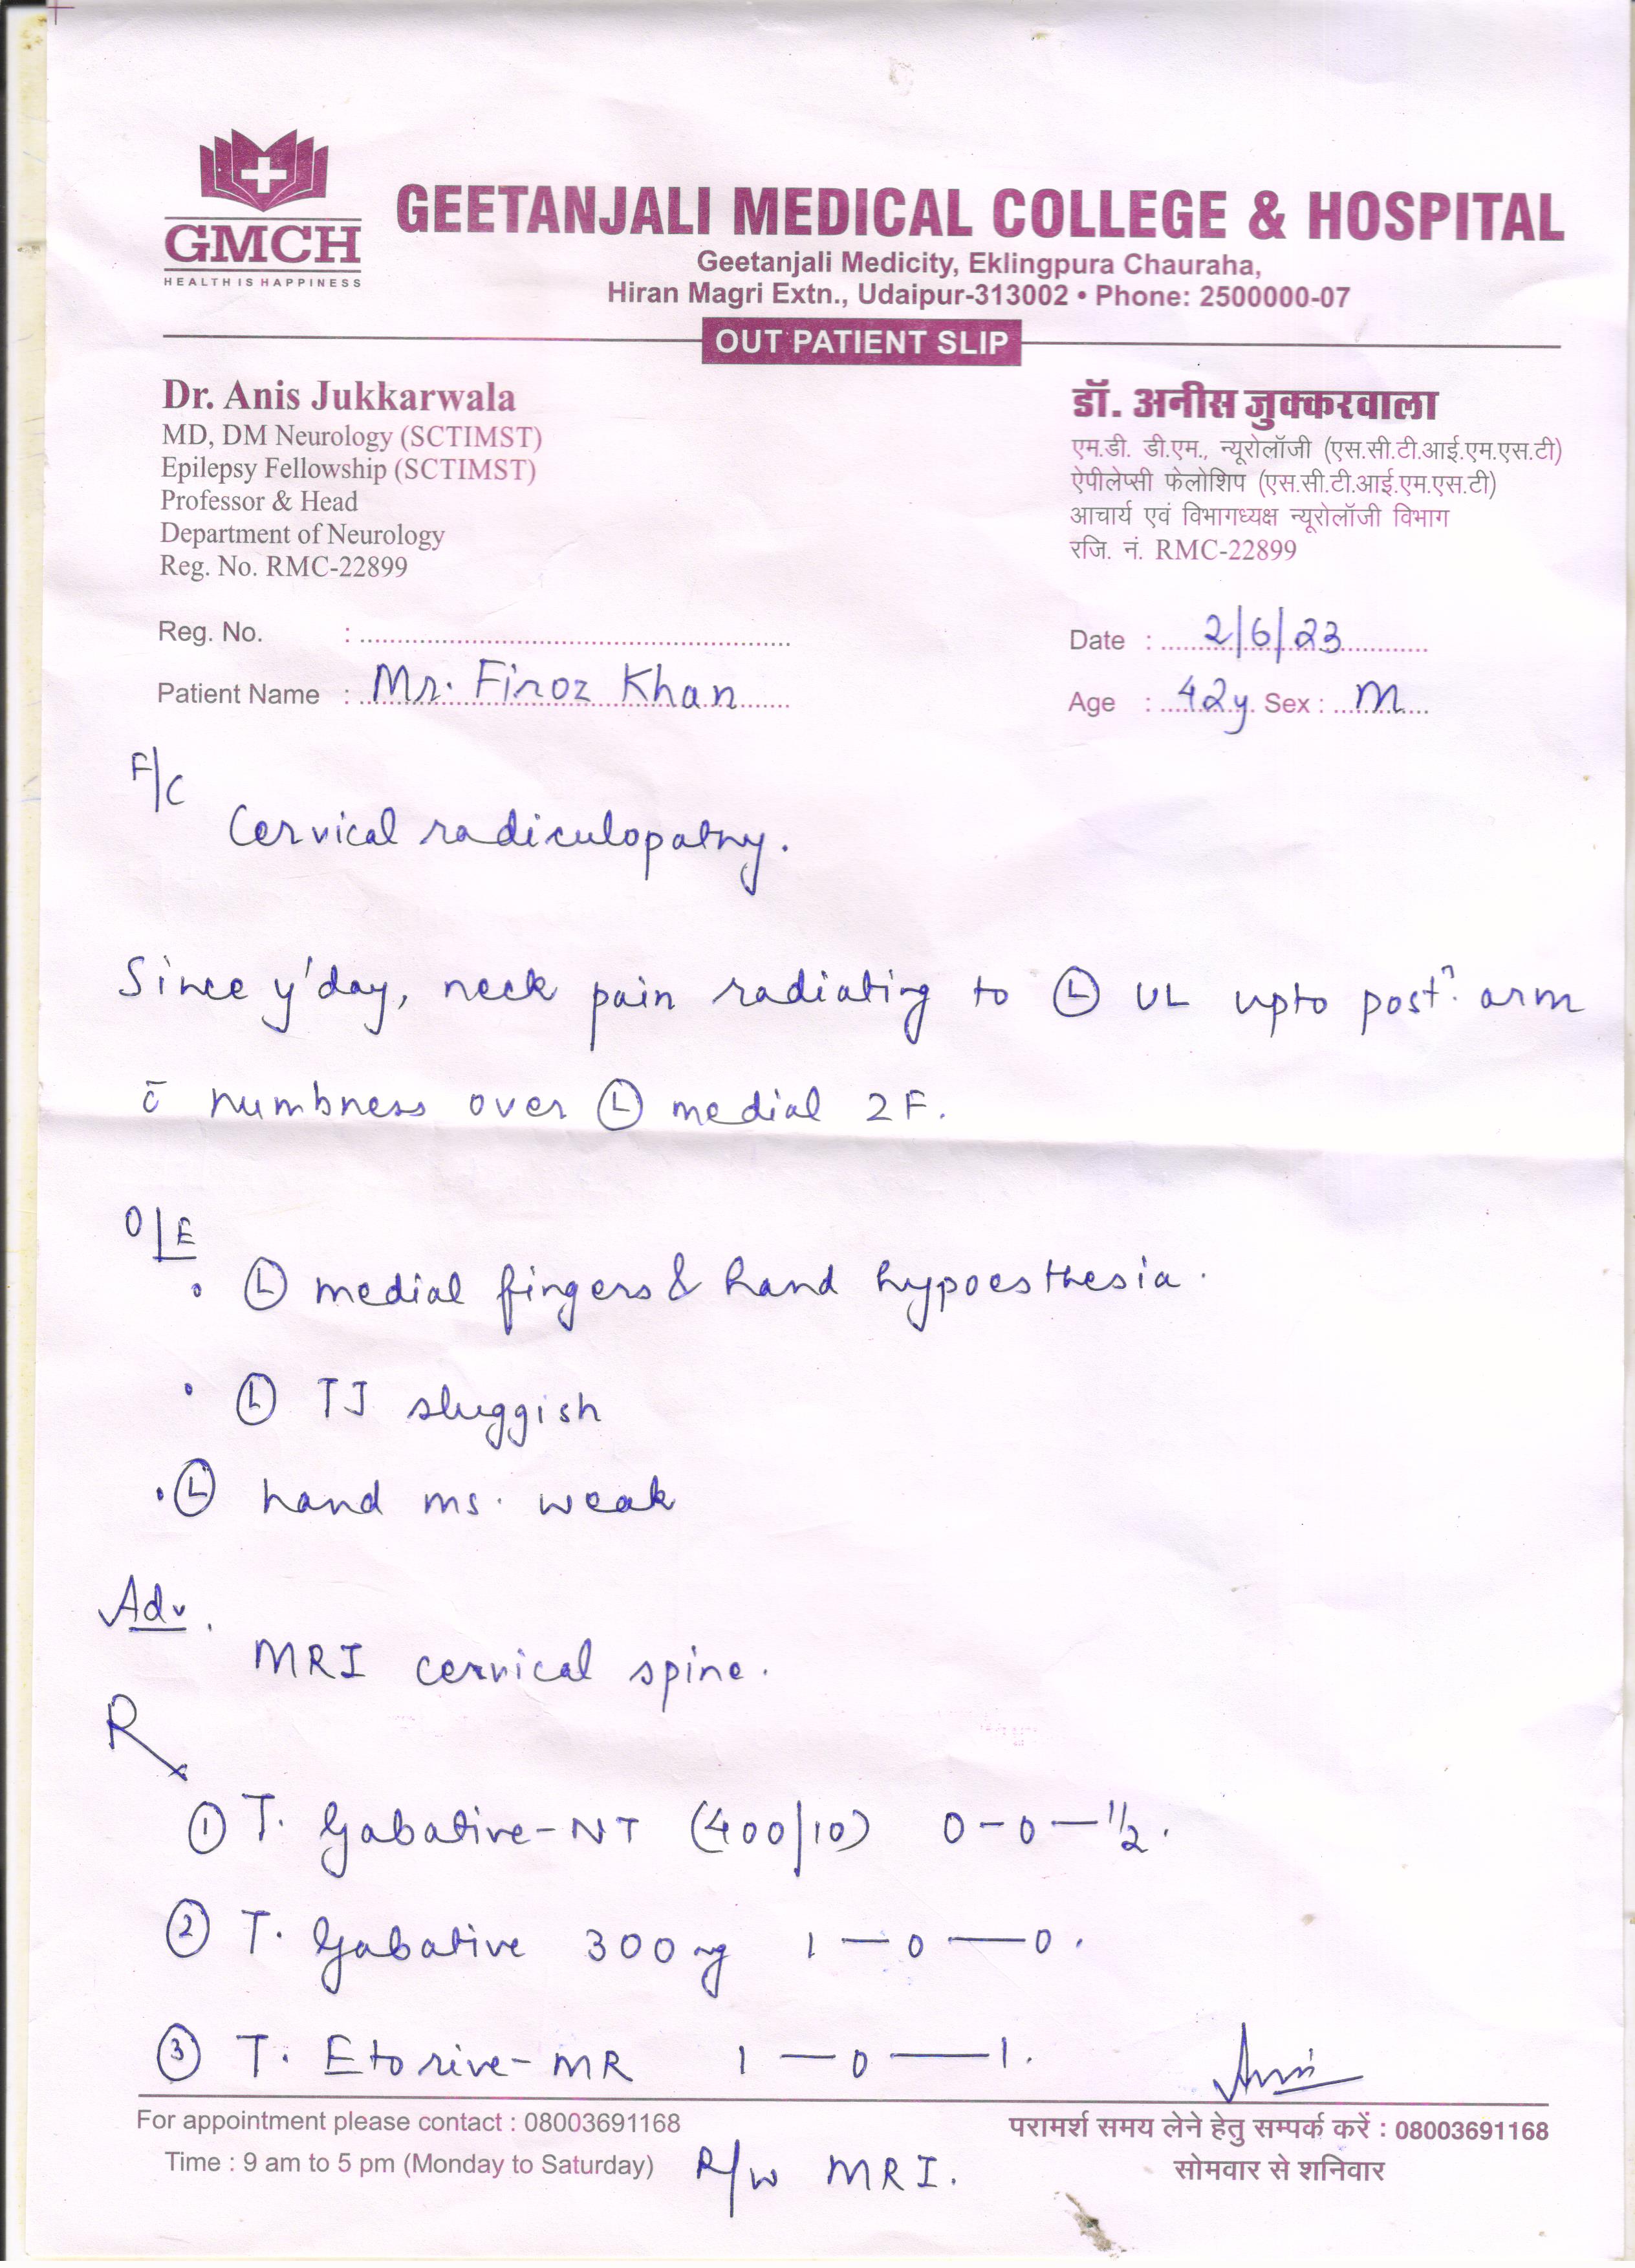 GMCH
HEALTH IS HAPPINESS
GEETANJALI MEDICAL COLLEGE & HOSPITAL
Geetanjali Medicity, Eklingpura Chauraha,
Hiran Magri Extn., Udaipur-313002 • Phone: 2500000-07
OUT PATIENT SLIP
Dr. Anis Jukkarwala
MD, DM Neurology (SCTIMST)
Epilepsy Fellowship (SCTIMST)
Professor & Head
Department of Neurology
Reg. No. RMC-22899
डॉ. अनीस जुक्करवाला
एम.डी. डी.एम., न्यूरोलॉजी (एस.सी.टी.आई.एम.एस.टी)
ऐपीलेप्सी फेलोशिप (एस.सी.टी.आई.एम.एस.टी)
आचार्य एवं विभागध्यक्ष न्यूरोलॉजी विभाग
रजि. नं. RMC-22899
Reg. No. :
Date : 2/6/23
Patient Name : Mr. Firoz Khan
Age : 42y Sex : M
F/C
Cervical radiculopathy.
Since y'day, neck pain radiating to Ⓛ UL upto postr. arm
c̄ numbness over Ⓛ medial 2F.
O/E
• Ⓛ medial fingers & hand hypoesthesia.
• Ⓛ TJ sluggish
• Ⓛ hand ms. weak
Adv.
MRI cervical spine.
Rx
① T. Gabative-NT (400/10) 0-0-1/2.
② T. Gabative 300mg 1-0-0.
③ T. Etorive-MR 1-0-1.
For appointment please contact : 08003691168
Time : 9 am to 5 pm (Monday to Saturday)
R/w MRI.
परामर्श समय लेने हेतु सम्पर्क करें : 08003691168
सोमवार से शनिवार